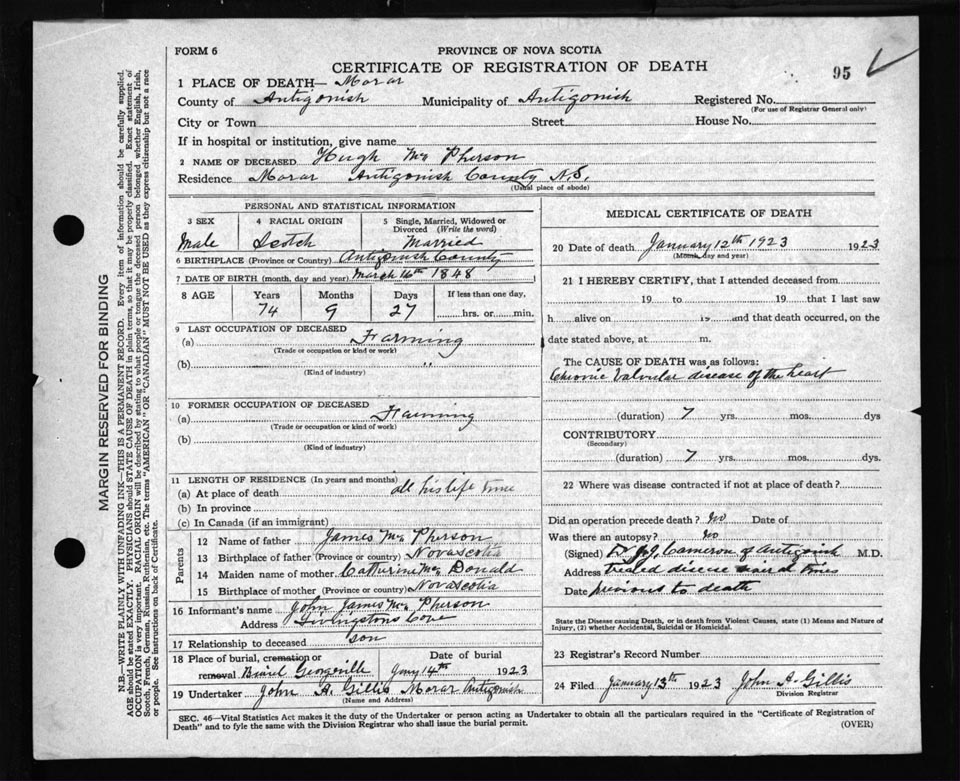 FORM 6
PROVINCE OF NOVA SCOTIA
CERTIFICATE OF REGISTRATION OF DEATH
95
1 PLACE OF DEATH— Morar
County of Antigonish Municipality of Antigonish Registered No.
(For use of Registrar General only)
City or Town Street House No.
If in hospital or institution, give name
2 NAME OF DECEASED Hugh Mc Pherson
Residence Morar Antigonish County N.S.
(Usual place of abode)
PERSONAL AND STATISTICAL INFORMATION
3 SEX 4 RACIAL ORIGIN 5 Single, Married, Widowed or
Divorced (Write the word)
Male Scotch Married
6 BIRTHPLACE (Province or Country) Antigonish County
7 DATE OF BIRTH (month, day and year) March 16th 1848
8 AGE Years Months Days If less than one day,
74 9 27 hrs. or min.
9 LAST OCCUPATION OF DECEASED
(a) Farming
(Trade or occupation or kind or work)
(b) "
(Kind of industry)
10 FORMER OCCUPATION OF DECEASED
(a) Farming
(Trade or occupation or kind or work)
(b)
(Kind of industry)
11 LENGTH OF RESIDENCE (In years and months)
(a) At place of death all his life time
(b) In province
(c) In Canada (if an immigrant)
Parents
12 Name of father James Mc Pherson
13 Birthplace of father (Province or country) Novascotia
14 Maiden name of mother Catherine Mc Donald
15 Birthplace of mother (Province or country) Novascotia
16 Informant's name John James Mc Pherson
Address Livingstons Cove
17 Relationship to deceased son
18 Place of burial, cremation or Date of burial
removal Georgeville Jany 14th 1923
19 Undertaker John A. Gillis Morar Antigonish
(Name and Address)
MEDICAL CERTIFICATE OF DEATH
20 Date of death January 12th 1923 1923
(Month, day and year)
21 I HEREBY CERTIFY, that I attended deceased from
19 to 19 that I last saw
h alive on 19 and that death occurred, on the
date stated above, at m.
The CAUSE OF DEATH was as follows:
Chronic Valvular disease of the heart
(duration) 7 yrs. mos. dys
CONTRIBUTORY
(Secondary)
(duration) 7 yrs. mos. dys.
22 Where was disease contracted if not at place of death?
Did an operation precede death? No Date of
Was there an autopsy? No
(Signed) Dr J.J. Cameron of Antigonish M.D.
Address treated disease times
Date Previous to death
State the Disease causing Death, or in death from Violent Causes, state (1) Means and Nature of
Injury, (2) whether Accidental, Suicidal or Homicidal.
23 Registrar's Record Number
24 Filed January 13th 1923 John A. Gillis
Division Registrar
SEC. 46—Vital Statistics Act makes it the duty of the Undertaker or person acting as Undertaker to obtain all the particulars required in the "Certificate of Registration of
Death" and to fyle the same with the Division Registrar who shall issue the burial permit.
(OVER)
MARGIN RESERVED FOR BINDING
N.B.—WRITE PLAINLY WITH UNFADING INK—THIS IS A PERMANENT RECORD. Every item of information should be carefully supplied.
AGE should be stated EXACTLY. PHYSICIANS should STATE CAUSE OF DEATH in plain terms, so that it may be properly classified. Exact statement of
OCCUPATION is very important. RACIAL ORIGIN will be described by stating to what people or tongue the deceased person belonged whether English, Irish,
Scotch, French, German, Russian, Ruthenian, etc. The terms "AMERICAN" OR "CANADIAN" MUST NOT BE USED as they express citizenship but not a race
or people. See instructions on back of Certificate.